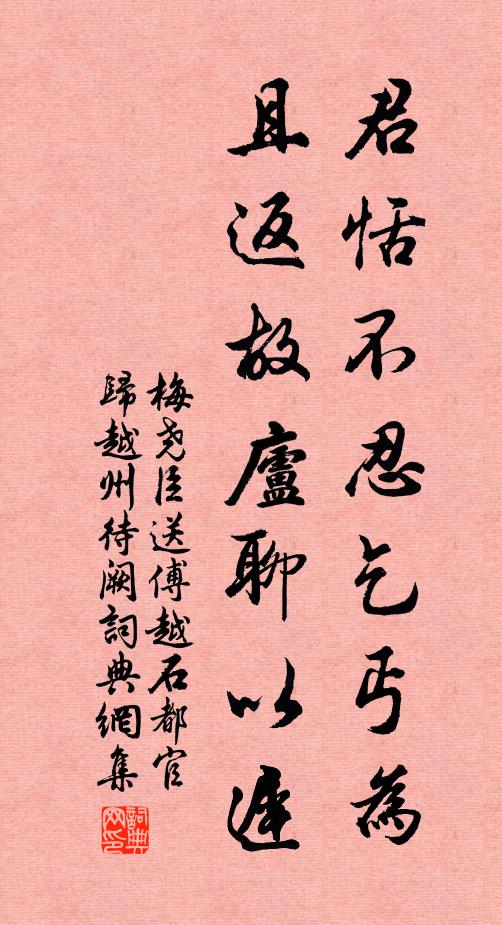 君恬不忍乞丐為
且返故廬聊以遲
梅堯臣送傅越石都官
歸越州待闕詞典網集
詞典
网印